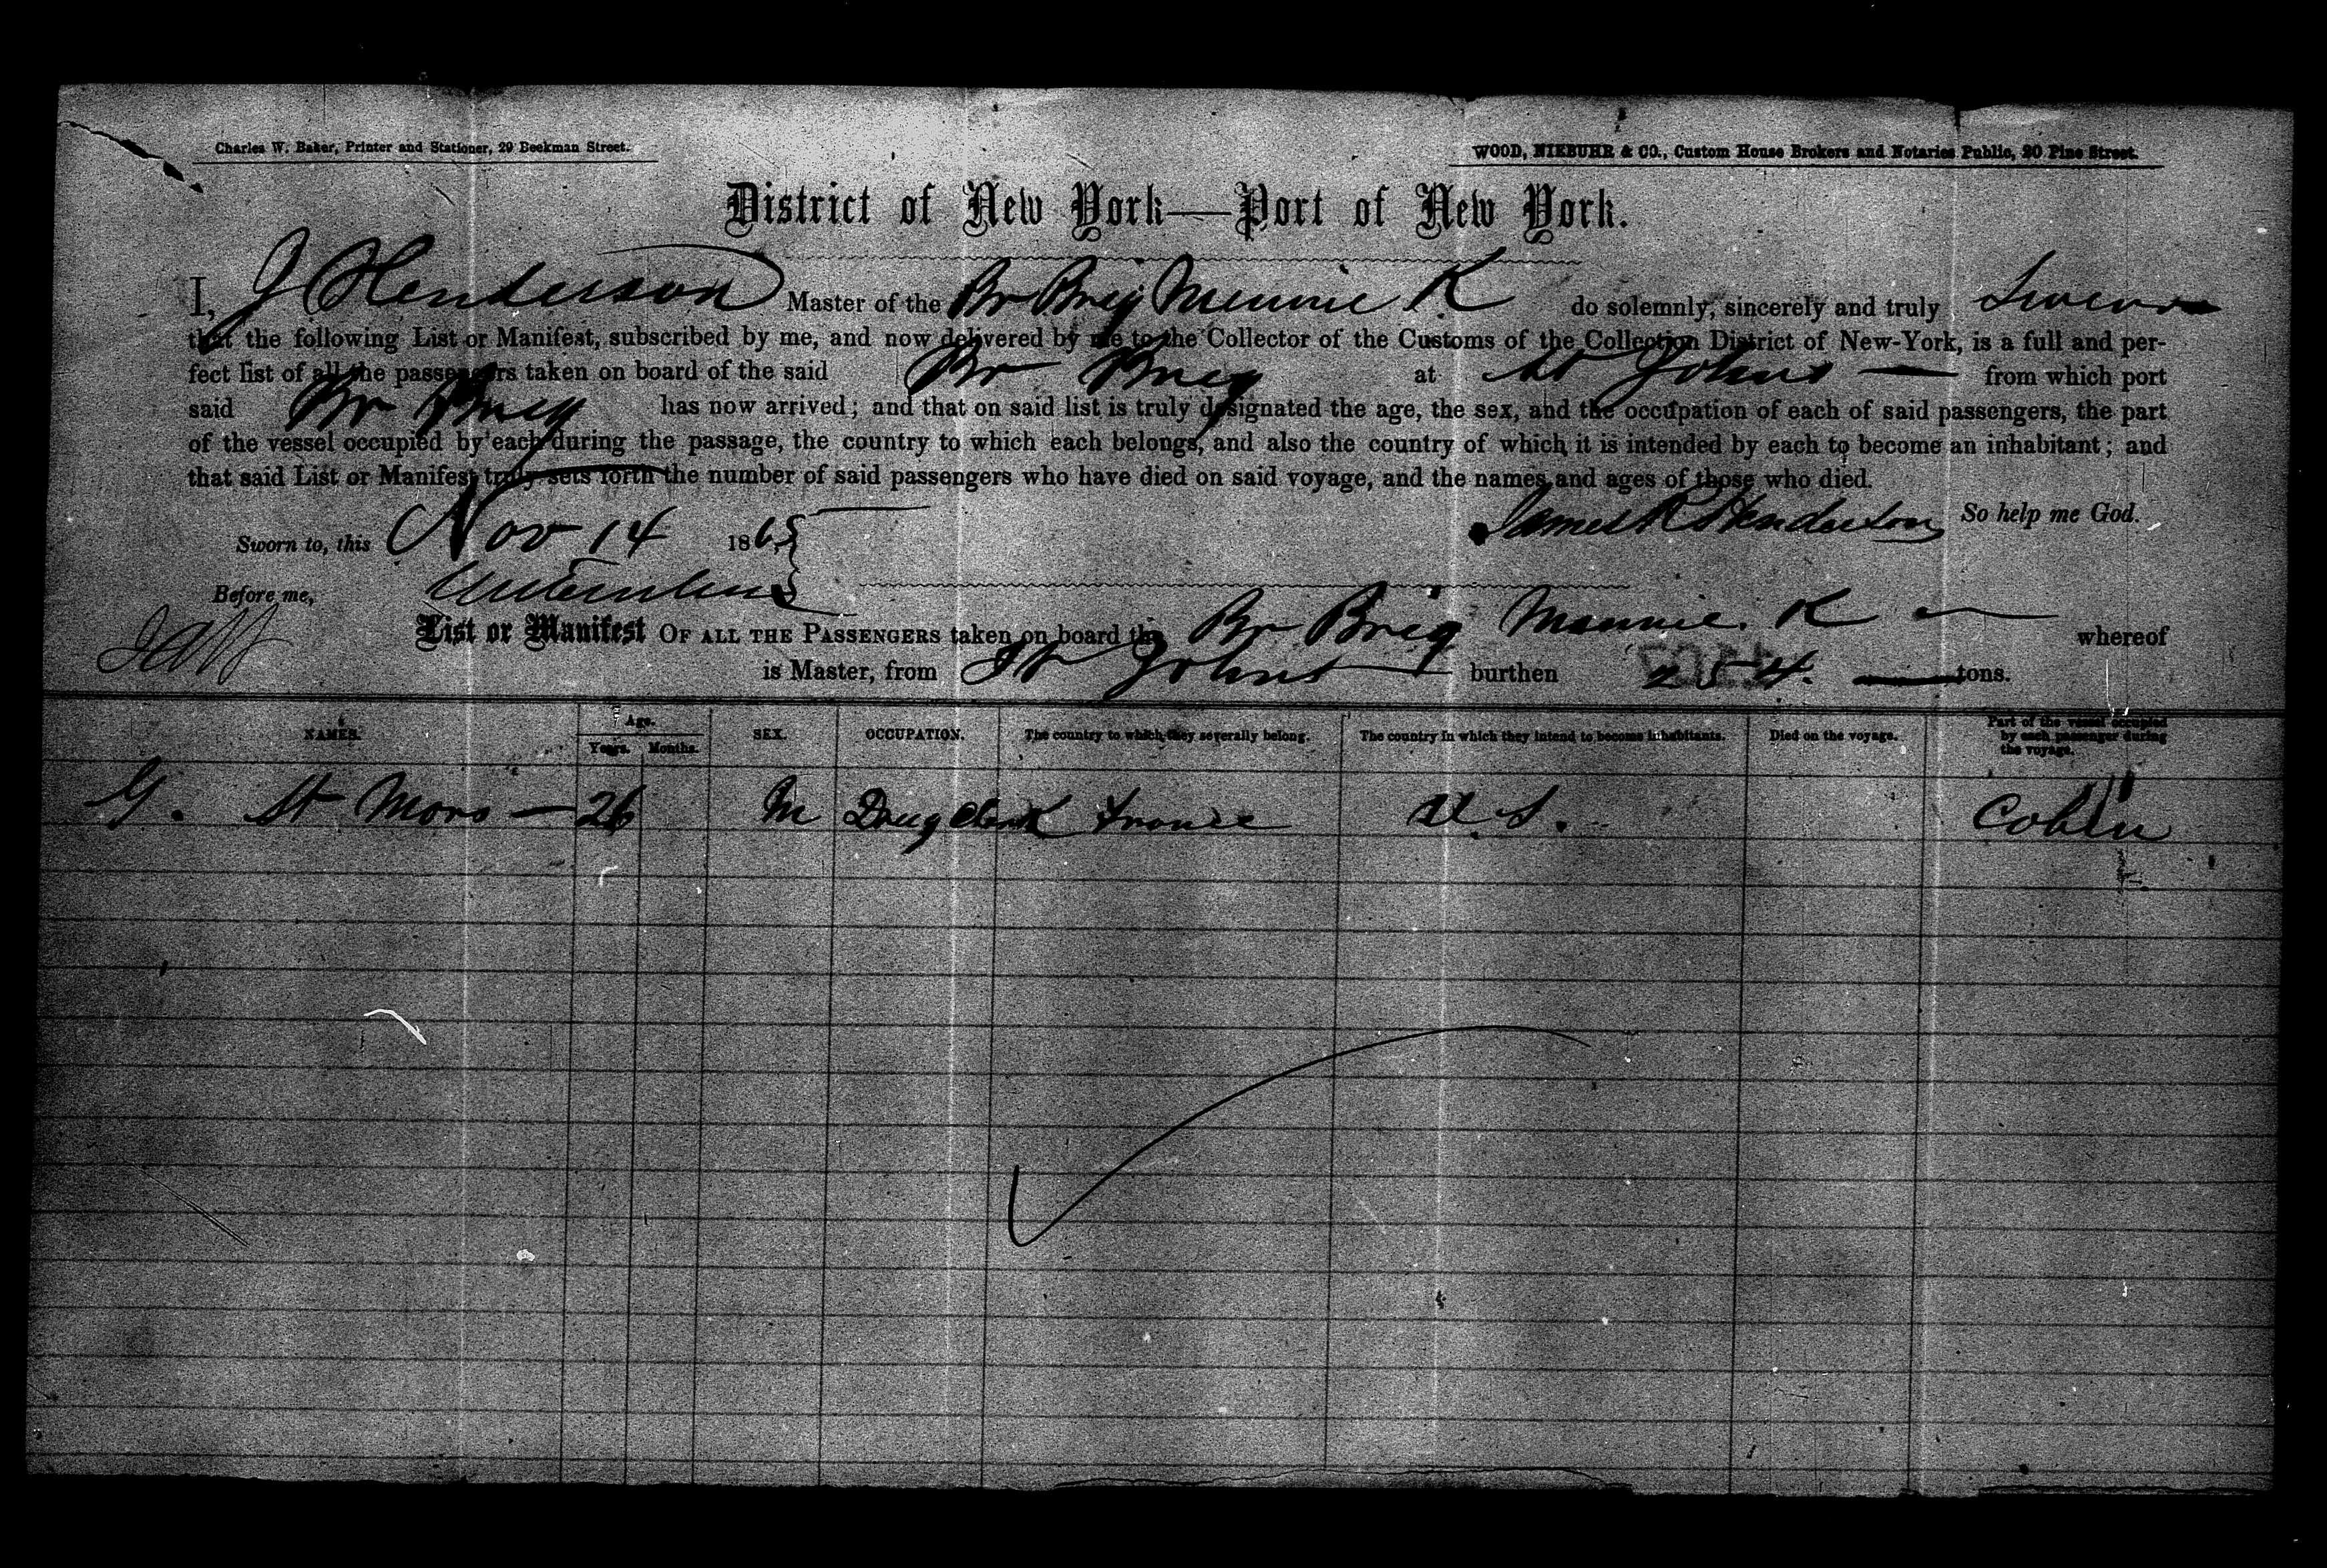 Charles W. Baker, Printer and Stationer, 29 Beekman Street.
WOOD, NIEBUHR & CO., Custom House Brokers and Notaries Public, 20 Pine Street.
District of New York—Port of New York.
I, J Henderson Master of the Br Brig Minnie K do solemnly, sincerely and truly Swear
that the following List or Manifest, subscribed by me, and now delivered by me to the Collector of the Customs of the Collection District of New-York, is a full and per-
fect list of all the passengers taken on board of the said Br Brig at St Johns — from which port
said Br Brig has now arrived; and that on said list is truly designated the age, the sex, and the occupation of each of said passengers, the part
of the vessel occupied by each during the passage, the country to which each belongs, and also the country of which it is intended by each to become an inhabitant; and
that said List or Manifest truly sets forth the number of said passengers who have died on said voyage, and the names and ages of those who died.
James R Henderson So help me God.
Sworn to, this Nov 14 1865
Before me,
List or Manifest OF ALL THE PASSENGERS taken on board the Br Brig Minnie. K — whereof
is Master, from St Johns burthen 254. — tons.
NAMES. Age. Years. Months. SEX. OCCUPATION. The country to which they severally belong. The country in which they intend to become inhabitants. Died on the voyage. Part of the vessel occupied by each passenger during the voyage.
G. St Moro — 26 M Drug Clerk France U. S. Cabin